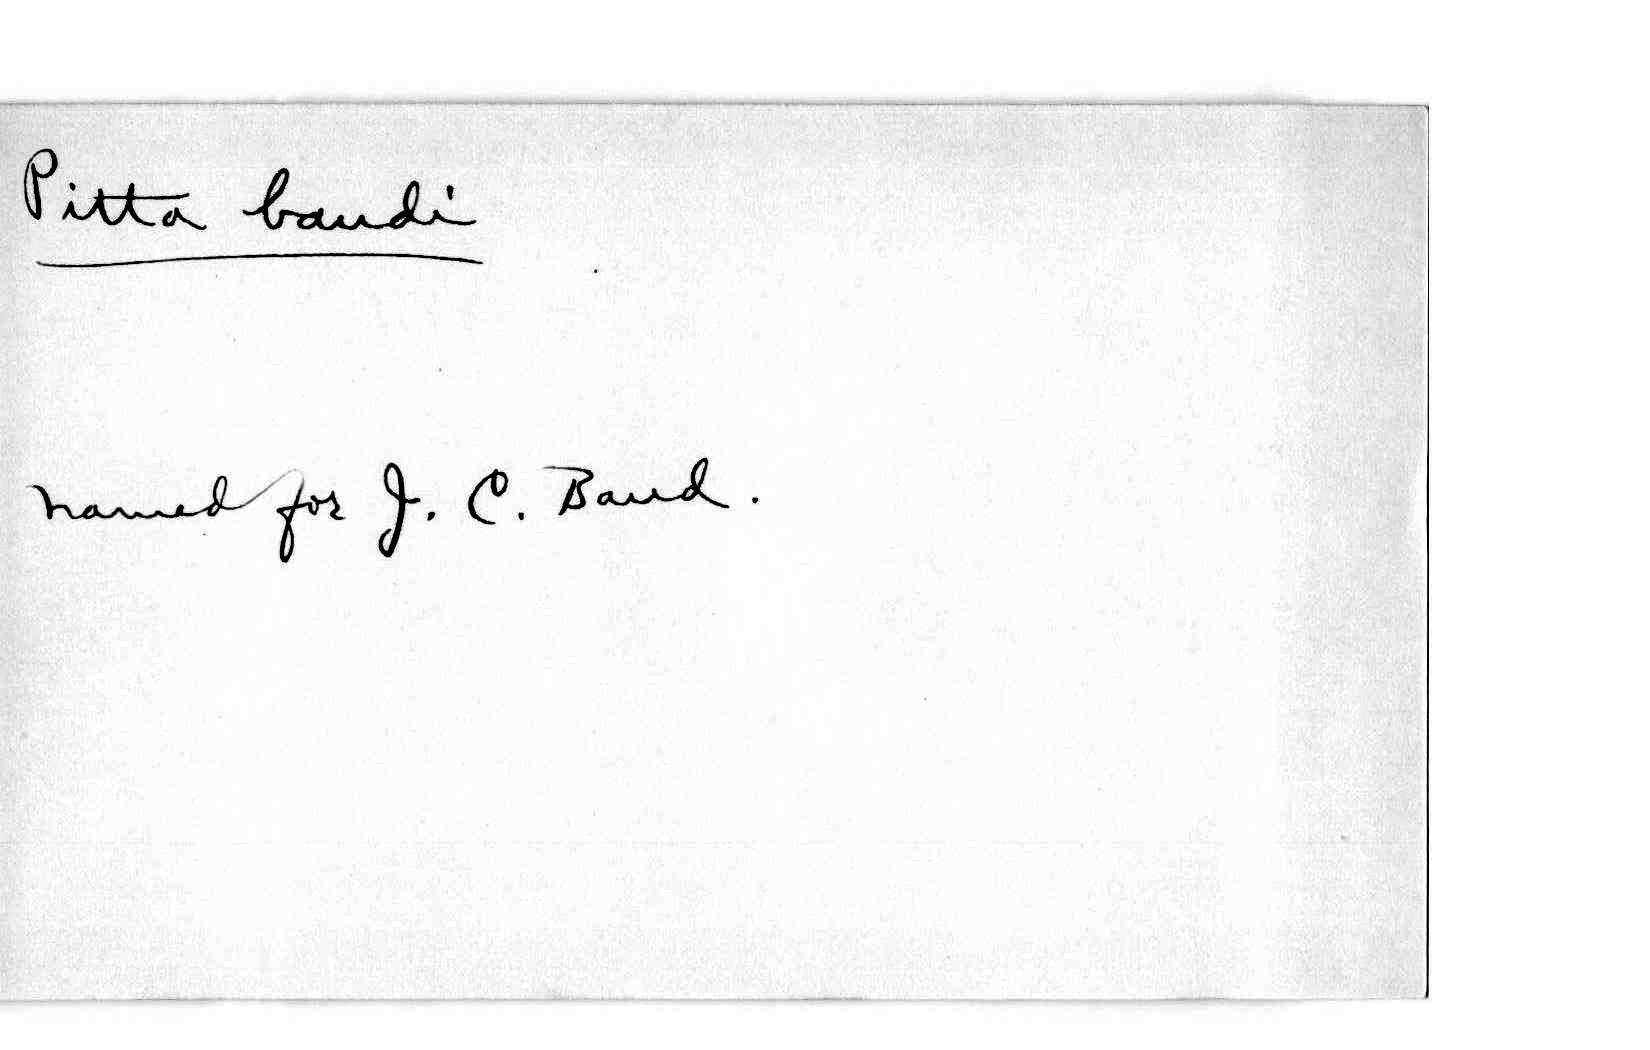 Pitta baudi
named for J. C. Baud.